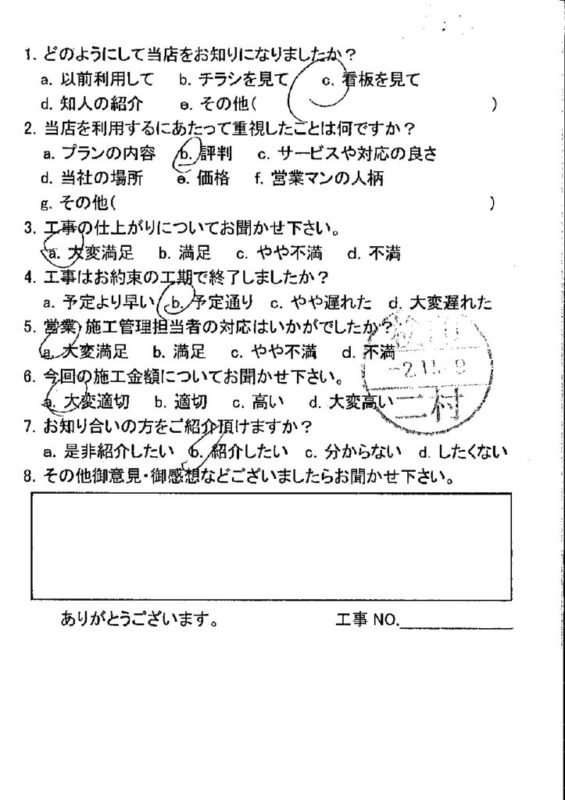 1. どのようにして当店をお知りになりましたか？
a. 以前利用して　b. チラシを見て　c. 看板を見て
d. 知人の紹介　e. その他(　)
2. 当店を利用するにあたって重視したことは何ですか？
a. プランの内容　b. 評判　c. サービスや対応の良さ
d. 当社の場所　e. 価格　f. 営業マンの人柄
g. その他(　)
3. 工事の仕上がりについてお聞かせ下さい。
a. 大変満足　b. 満足　c. やや不満　d. 不満
4. 工事はお約束の工期で終了しましたか？
a. 予定より早い　b. 予定通り　c. やや遅れた　d. 大変遅れた
5. 営業・施工管理担当者の対応はいかがでしたか？
a. 大変満足　b. 満足　c. やや不満　d. 不満
6. 今回の施工金額についてお聞かせ下さい。
a. 大変適切　b. 適切　c. 高い　d. 大変高い
二村
7. お知り合いの方をご紹介頂けますか？
a. 是非紹介したい　b. 紹介したい　c. 分からない　d. したくない
8. その他御意見・御感想などございましたらお聞かせ下さい。
ありがとうございます。　工事 NO.